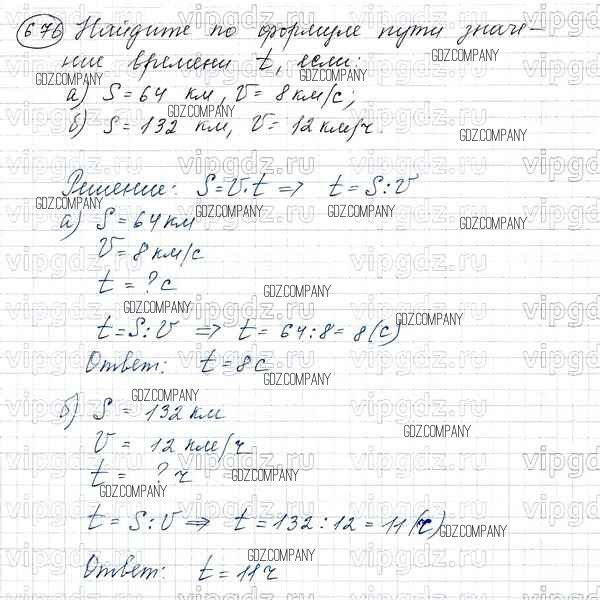 676 Найдите по формуле пути значе-
ние времени t, если:
а) S = 64 км, V = 8 км/с;
б) S = 132 км, V = 12 км/ч.
Решение: S = V · t => t = S : V
а) S = 64 км
V = 8 км/с
t = ? с
t = S : V => t = 64 : 8 = 8 (с)
Ответ: t = 8 с
б) S = 132 км
V = 12 км/ч
t = ? ч
t = S : V => t = 132 : 12 = 11 (ч)
Ответ: t = 11 ч
GDZ.COMPANY
vipgdz.ru